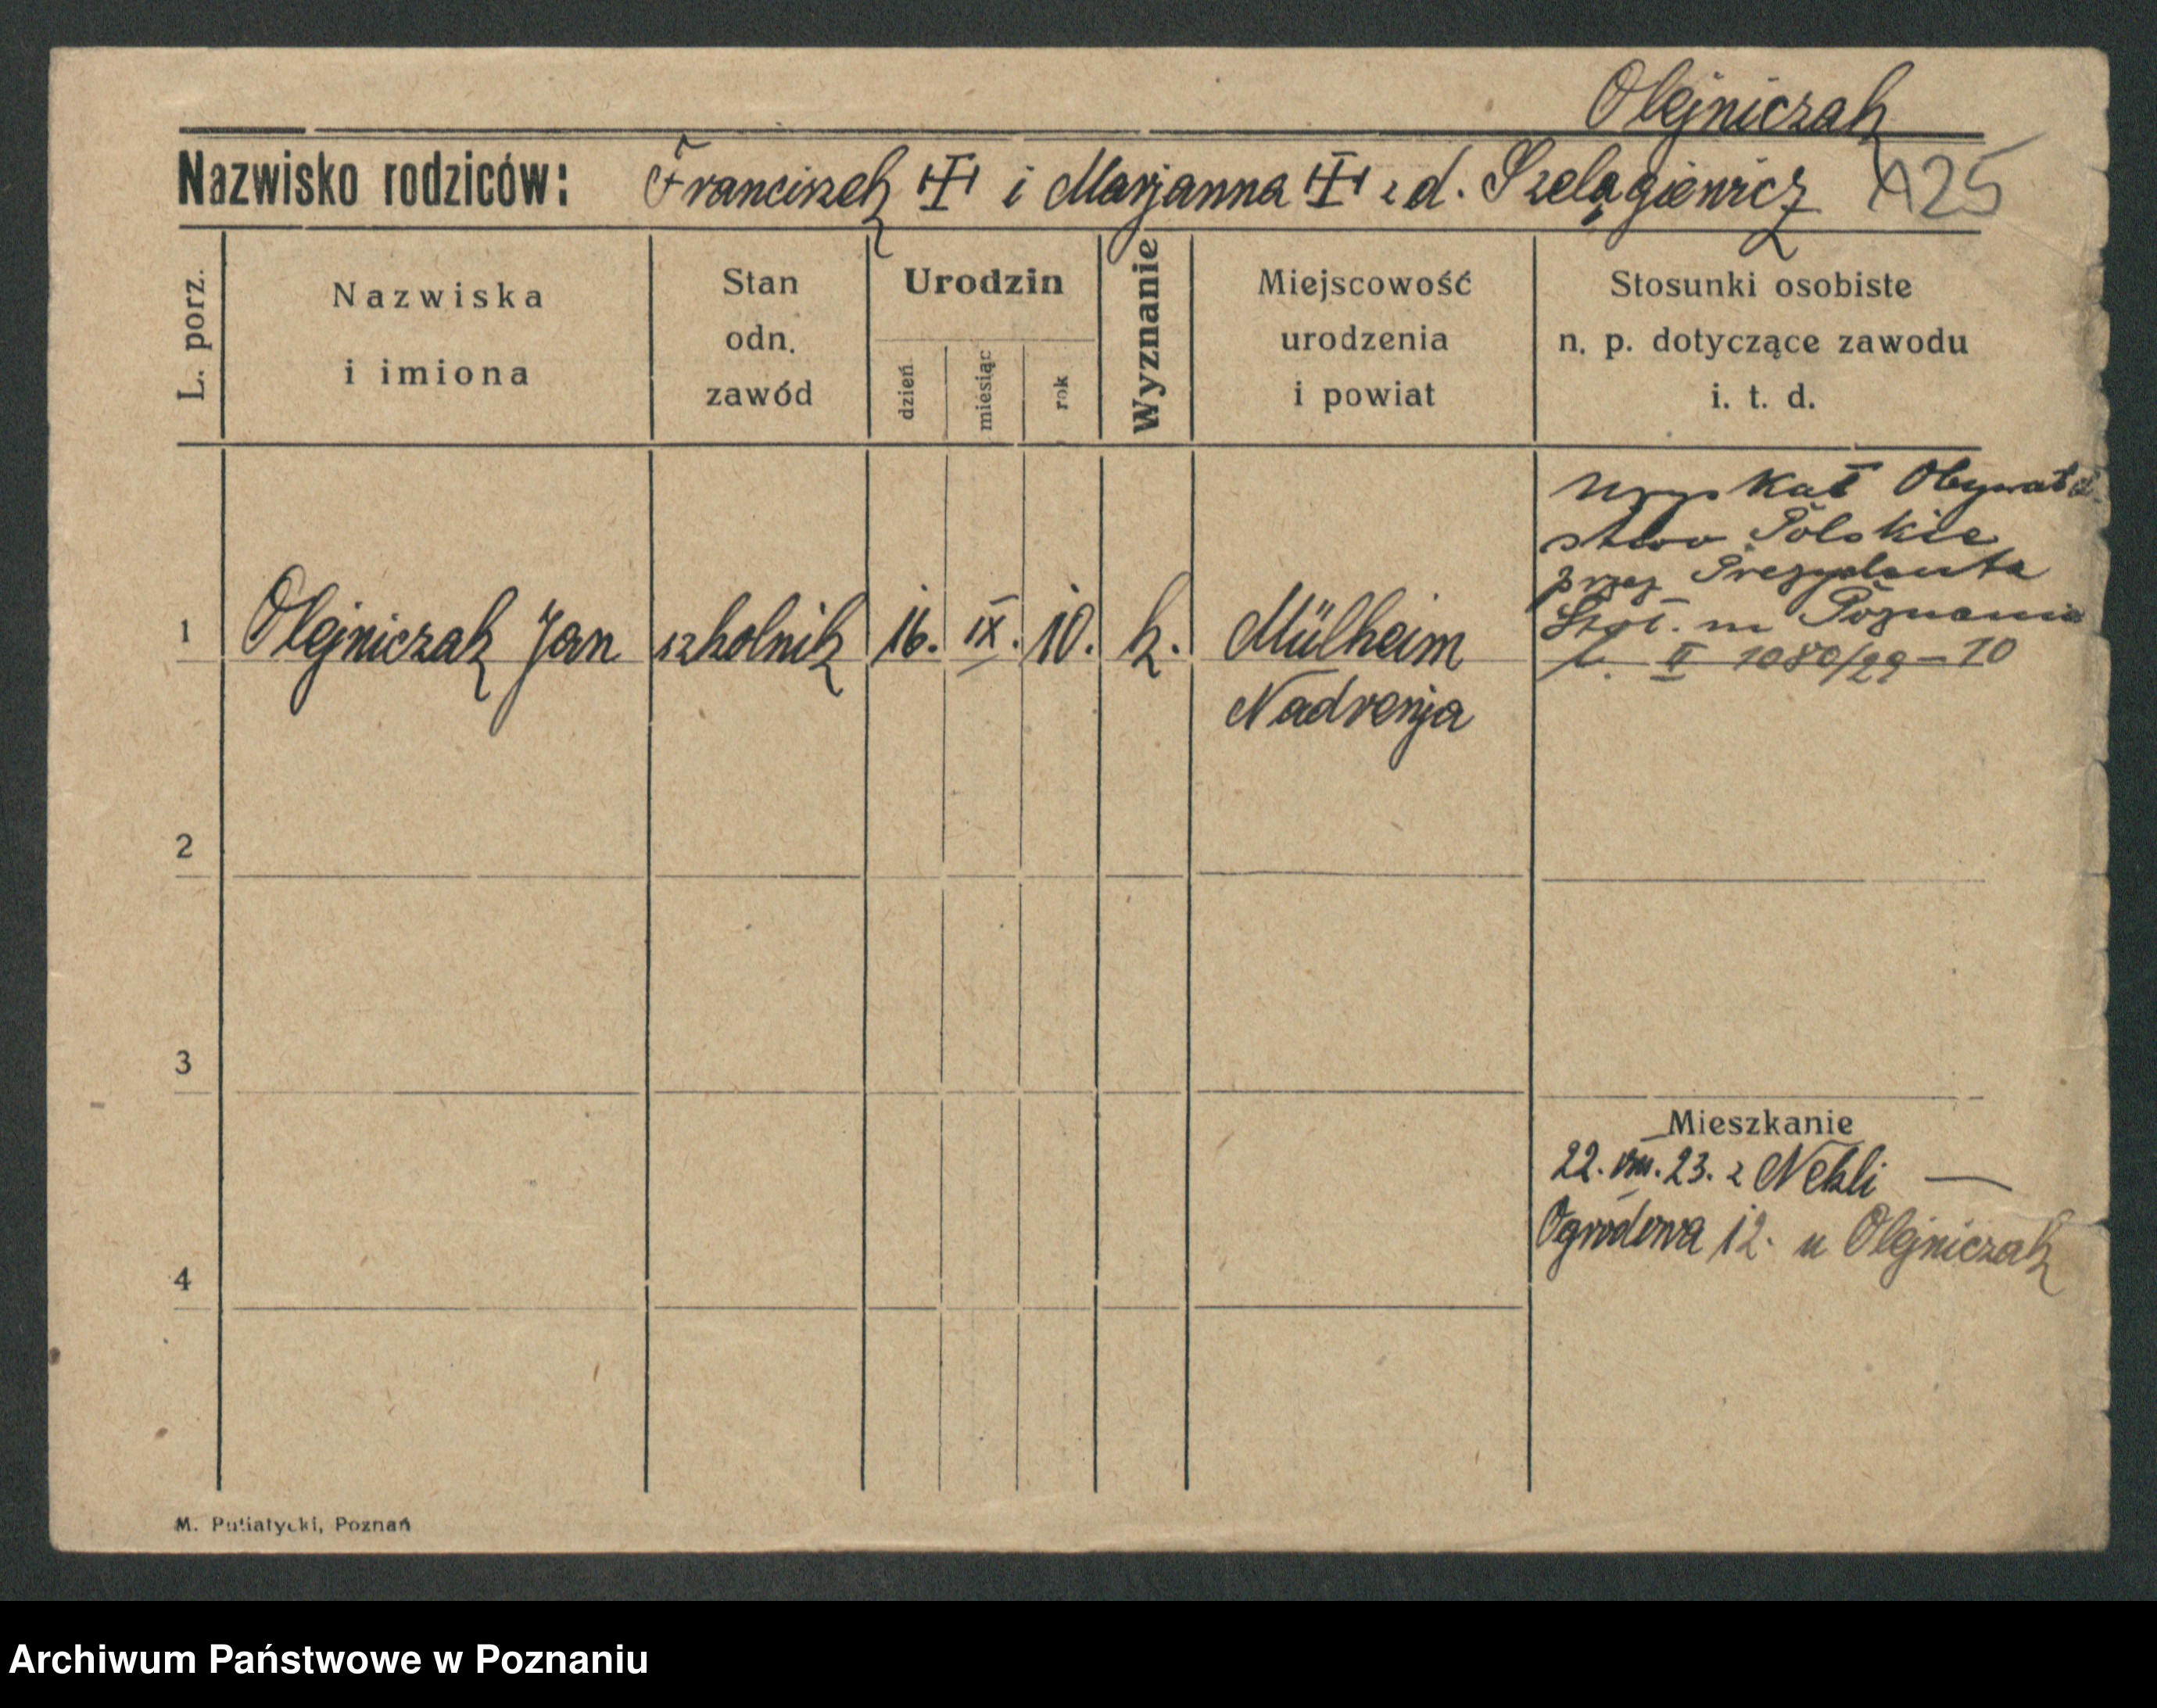 Olejniczak
Nazwisko rodziców: Franciszek i Marjanna z d. Szelągiewicz
A25
L. porz.
Nazwiska
i imiona
Stan
odn.
zawód
Urodzin
dzień
miesiąc
rok
Wyznanie
Miejscowość
urodzenia
i powiat
Stosunki osobiste
n. p. dotyczące zawodu
i. t. d.
1 Olejniczak Jan szkolnik 16. IX. 10. k. Mülheim
Nadrenja
uzyskał Obywatel
stwo Polskie
przez Prezydenta
Stoł. m Poznania
L. II 1080/29-10
2
3
4
Mieszkanie
22. VIII. 23. z Nekli —
Ogrodowa 12. u Olejniczak
M. Putiatycki, Poznań
Archiwum Państwowe w Poznaniu